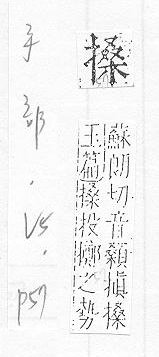 搡
蘇朗切音顙搷搡
玉篇搡投擲之勢
手部.15.
p57